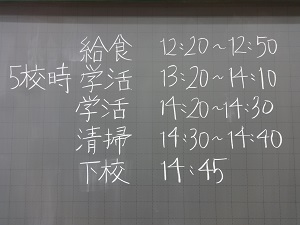 給食 12:20~12:50
5校時 学活 13:20~14:10
学活 14:20~14:30
清掃 14:30~14:40
下校 14:45